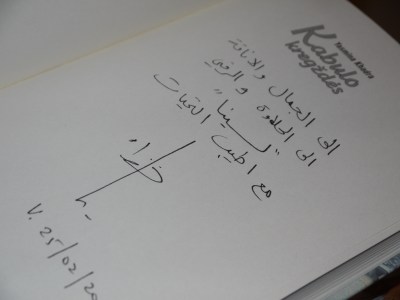 Yasmina Khadra
Kabulo
kregždės
الى الجمال والاناقة
الى الحلاوة والرقي
مع اطيب التحيات
V. 25/02/20